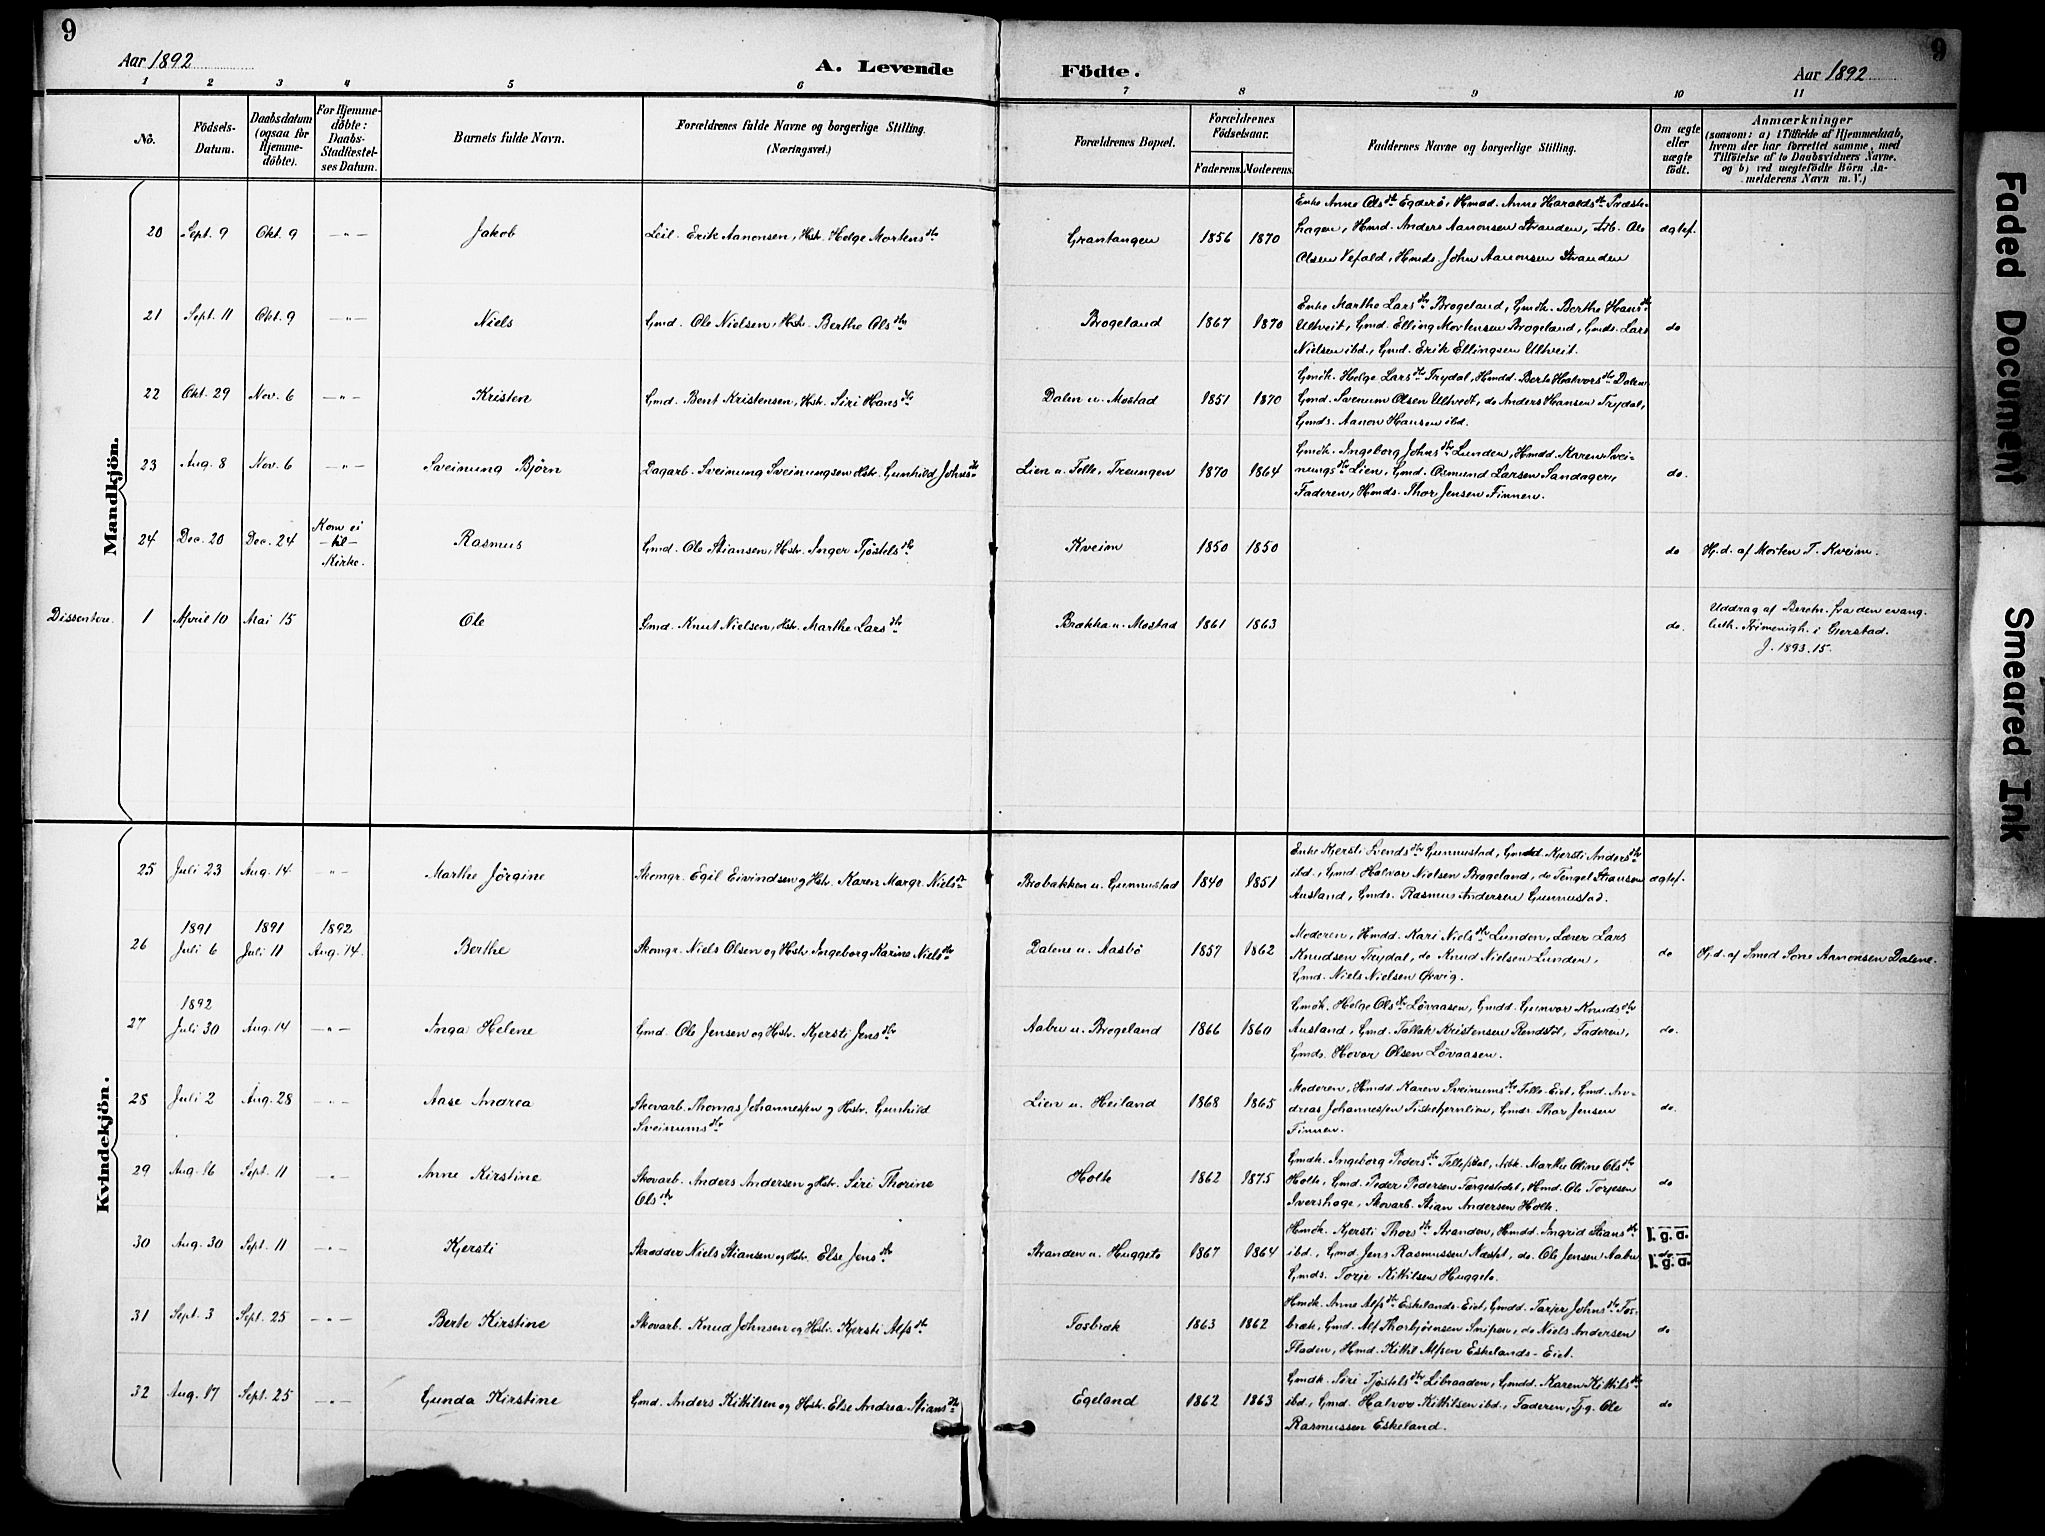 9
9
Aar 1892
A. Levende
Födte.
Aar 1892
1 2 3 4 5 6 7 8 9 10 11
No.
Födsels-
Datum.
Daabsdatum
(ogsaa for
Hjemme-
döbte).
For Hjemme-
döbte:
Daabs-
Stadfæstel-
ses Datum.
Barnets fulde Navn.
Forældrenes fulde Navne og borgerlige Stilling.
(Næringsvei.)
Forældrenes Bopæl.
Forældrenes
Födselsaar.
Faderens.
Moderens.
Faddernes Navne og borgerlige Stilling.
Om ægte
eller
uægte
födt.
Anmærkninger
(saasom: a) i Tilfælde af Hjemmedaab,
hvem der har forrettet samme, med
Tilföielse af to Daabsvidners Navne.
og b) ved uægtefödte Börn An-
melderens Navn m. V.)
Mandkjön.
20 Sept. 9 Okt. 9 -"- Jakob Leil. Erik Aanonsen, Hstr. Helge Mortensdtr Grantangen 1856 1870
Enke Anne Olsdtr Egderö, Hmd. Anne Haraldsdtr Præst-
hagen, Hmd. Anders Aanonsen Stranden, Arb. Ole
Olsen Vefald, Hmds. John Aanonsen Stranden
ægtef.
21 Sept. 11 Okt. 9 -"- Niels Gmd. Ole Nielsen, Hstr. Berthe Olsdtr Brogeland 1867 1870
Enke Marthe Larsdtr Brogeland, Gmdk. Berthe Hansdtr
Ultveit, Gmd. Elling Mortensen Brogeland, Gmds. Lars
Nielsen ibd., Gmd. Erik Ellingsen Ultveit.
do
22 Okt. 29 Nov. 6 -"- Kristen Gmd. Bent Kristensen, Hstr. Siri Hansdtr Dalen u. Mostad 1851 1870
Gmdk. Helge Larsdtr Trydal, Hmdd. Berte Halvorsdtr Dalen,
Gmd. Svenum Olsen Ultvedt, do Anders Hansen Trydal,
Gmds. Aanon Hansen ibd.
do
23 Aug. 8 Nov. 6 -"- Sveinung Bjørn Dagarb. Sveinung Sveinungsen Hstr. Gunhild Johnsdtr Lien u. Felle, Treungen 1870 1864
Gmdk. Ingeborg Johnsdtr Lunden, Hmdd. Karen Svei-
nungsdtr Lien, Gmd. Osmund Larsen Sandager,
Faderen, Hmds. Thor Jensen Finnen.
do.
24 Dec. 20 Dec. 24 Kom ei
-til-
Kirke.
Rasmus Gmd. Ole Stiansen, Hstr. Inger Tjöstelsdtr Kveim 1850 1850 do Hj.d. af Morten T. Kveim.
Dissentere. 1 April 10 Mai 15 Ole Gmd. Knut Nielsen, Hstr. Marthe Larsdtr Brækka u. Mostad 1861 1863 do.
Uddrag af Beretn. fra den evang.
luth. Frimenigh. i Gjerstad.
J. 1893. 15.
Kvindekjön.
25 Juli 23 Aug. 14 -"- Marthe Jörgine Skomgr. Egil Eivindsen og Hstr. Karen Margr. Nielsdtr Brobakken u. Gunnustad 1840 1851
Enke Kjersti Svendsdtr Gunnustad, Gmdd. Kjersti Andersdtr
ibd., Gmd. Halvor Nielsen Brogeland, do Tengel Stiansen
Ausland, Gmds. Rasmus Andersen Gunnustad.
ægtef.
26 1891 Juli 6 1891 Juli 11 1892 Aug. 14. Berthe Skomgr. Niels Olsen og Hstr. Ingeborg Karine Nielsdtr Dalene u. Aasbö 1857 1862
Moderen, Hmdd. Kari Nielsdtr Lunden, Lærer Lars
Knudsen Trydal, do Knud Nielsen Lunden,
Gmd. Niels Nielsen Ørvig.
do Hj.d. af Smed Sone Aanonsen Dalene.
27 1892 Juli 30 Aug. 14 -"- Inga Helene Gmd. Ole Jensen og Hstr. Kjersti Jensdtr Aabru u. Brogeland 1866 1860
Gmdk. Helge Olsdtr Lövaasen, Gmdd. Gunvor Knudsdtr
Ausland, Gmd. Tallak Kristensen Rendstöl, Faderen,
Gmds. Hovor Olsen Lövaasen.
do.
28 Juli 2 Aug. 28 -"- Aase Andrea Skovarb. Thomas Johannessen og Hstr. Gunhild
Sveinumsdtr
Lien u. Heiland 1868 1865
Moderen, Hmdd. Karen Sveinumsdtr Felle-Eiet, Gmd. An-
dreas Johannessen Fisketjernlien, Gmds. Thor Jensen
Finnen.
do.
29 Aug. 16 Sept. 11 -"- Anne Kirstine Skovarb. Anders Andersen og Hstr. Siri Thorine
Olsdtr
Holte 1862 1875
Gmdk. Ingeborg Pedersdtr Tellefsdal, Arbk. Marthe Oline Olsdtr
Holte, Gmd. Peder Pedersen Færgestedet, Hmd. Ole Torjesen
Ivershage, Skovarb. Stian Andersen Holte.
do
30 Aug. 30 Sept. 11 -"- Kjersti Skrædder Niels Stiansen og Hstr. Else Jensdtr Stranden u. Huggeto 1867 1864
Hmdk. Kjersti Thorsdtr Stranden, Hmdd. Ingrid Stiansdtr
ibd., Gmd. Jens Rasmussen Næset, do. Ole Jensen Aabru
Gmds. Torje Kittilsen Huggeto.
I. g. a.
do
I. g. a.
31 Sept. 3 Sept. 25 -"- Berte Kirstine Skovarb. Knud Johnsen og Hstr. Kjersti Alfsdtr Fosbræk 1863 1862
Hmdk. Anne Alfsdtr Eskelands-Eiet, Gmdd. Tarjer Johnsdtr Fos-
bræk, Gmd. Alf Thorbjørnsen Snipen, do Niels Andersen
Fladen, Hmd. Kittil Alfsen Eskelands-Eiet.
do
32 Aug. 17 Sept. 25 -"- Gunda Kirstine Gmd. Anders Kittilsen og Hstr. Else Andrea Stiansdtr Egeland 1862 1863
Gmdk. Siri Tjöstelsdtr Libraaden, Gmdd. Karen Kittilsdtr
ibd., Gmd. Halvor Kittilsen ibd., Faderen, Tjg. Ole
Rasmussen Eskeland.
do
Faded Document
Smeared Ink